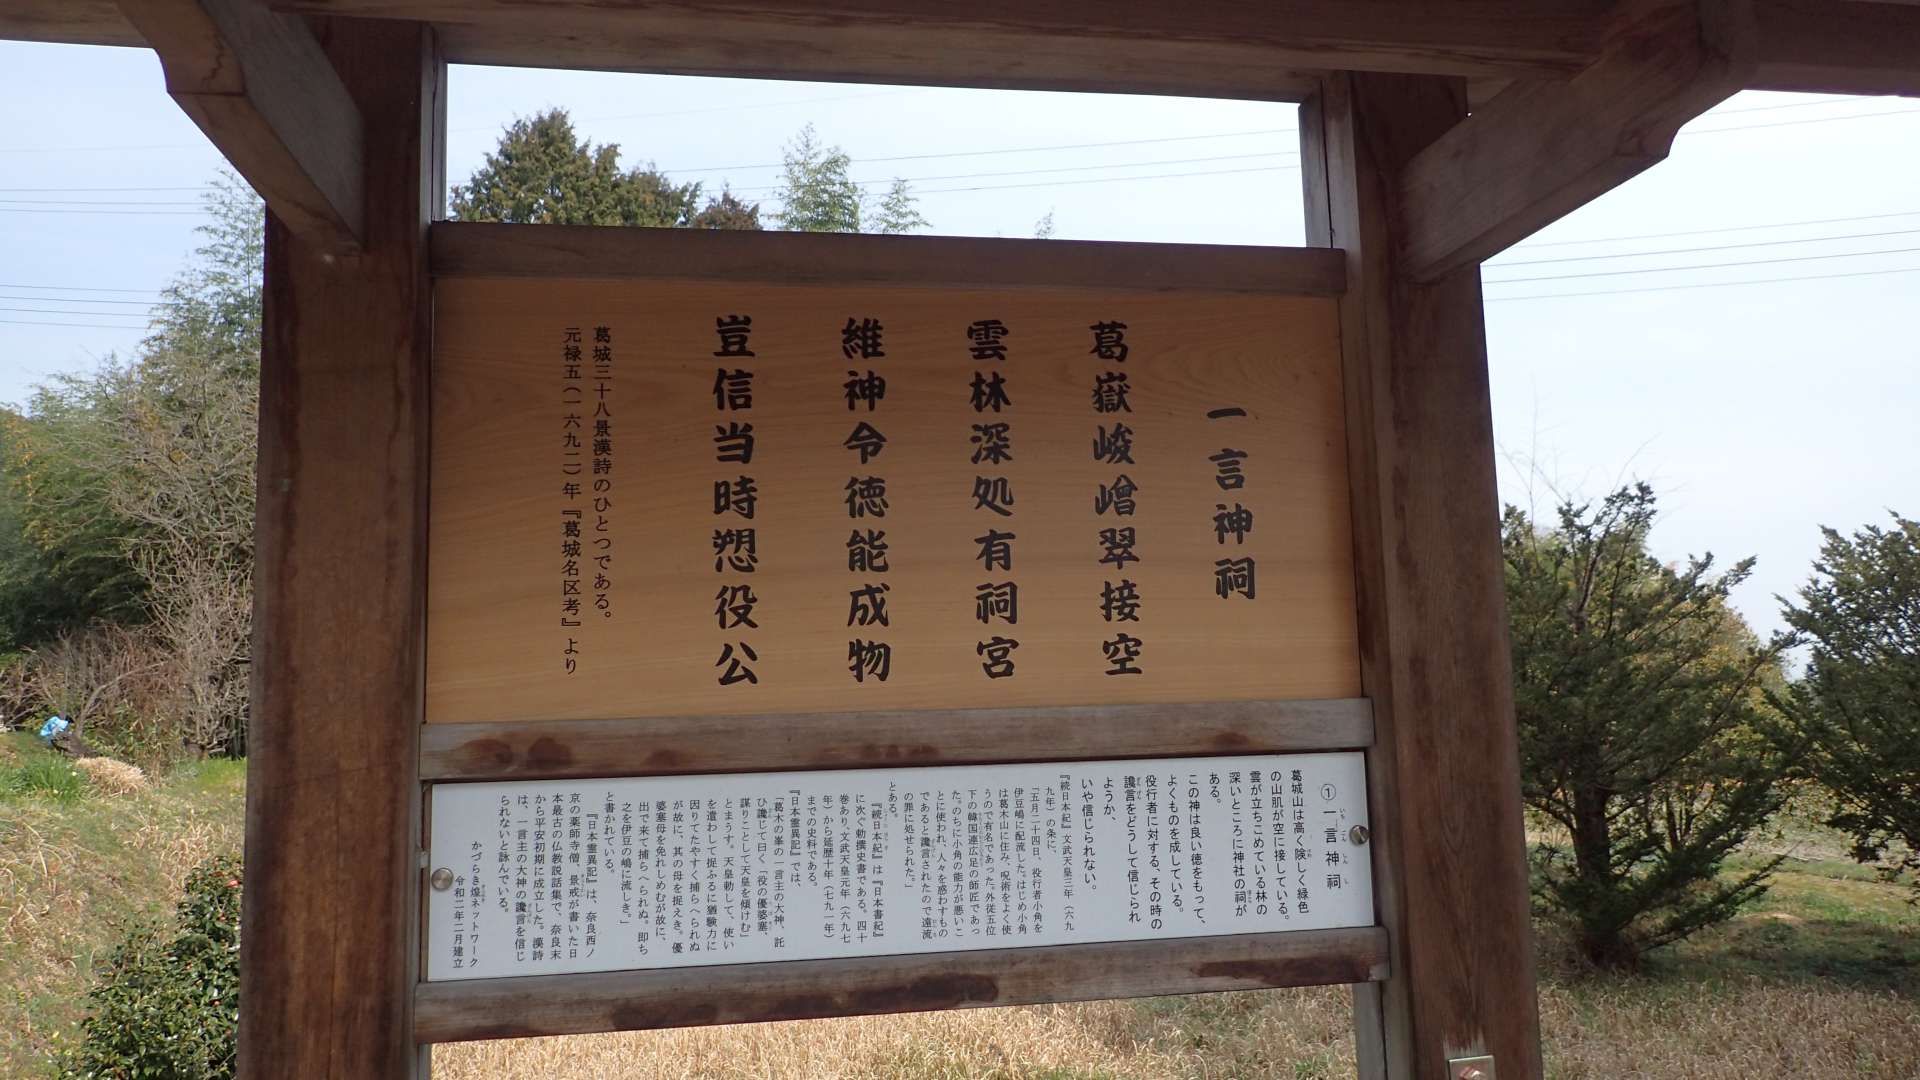 一言神祠
葛嶽峻嶒翠接空
雲林深処有祠宮
維神令徳能成物
豈信当時愬役公
葛城三十八景漢詩のひとつである。
元禄五(一六九二)年『葛城名区考』より
①一言神祠
葛城山は高く険しく緑色
の山肌が空に接している。
雲が立ちこめている林の
深いところに神社の祠が
ある。
この神は良い徳をもって、
よくものを成している。
役行者に対する、その時の
讒言をどうして信じられ
ようか、
いや信じられない。
『続日本紀』文武天皇三年(六九
九年)の条に、
「五月二十四日、役行者小角を
伊豆嶋に配流した。はじめ小角
は葛木山に住み、呪術をよく使
うので有名であった。外従五位
下の韓国連広足の師匠であっ
た。のちに小角の能力が悪いこ
とに使われ、人々を惑わすもの
であると讒言されたので遠流
の罪に処せられた。」
とある。
『続日本紀』は『日本書紀』
に次ぐ勅撰史書である。四十
巻あり、文武天皇元年(六九七
年)から延暦十年(七九一年)
までの史料である。
『日本霊異記』では、
「葛木の峯の一言主の大神、託
ひ讒じて曰く「役の優婆塞、
謀りことして天皇を傾けむ」
とまうす。天皇勅して、使い
を遣わして捉ふるに猶験力に
因りてたやすく捕らへられぬ
が故に、其の母を捉えき。優
婆塞母を免れしめむが故に、
出で来て捕らへられぬ。即ち
之を伊豆の嶋に流しき。」
と書かれている。
『日本霊異記』は、奈良西ノ
京の薬師寺僧、景戒が書いた日
本最古の仏教説話集で、奈良末
から平安初期に成立した。漢詩
は、一言主の大神の讒言を信じ
られないと詠んでいる。
かづらき煌ネットワーク
令和二年二月建立